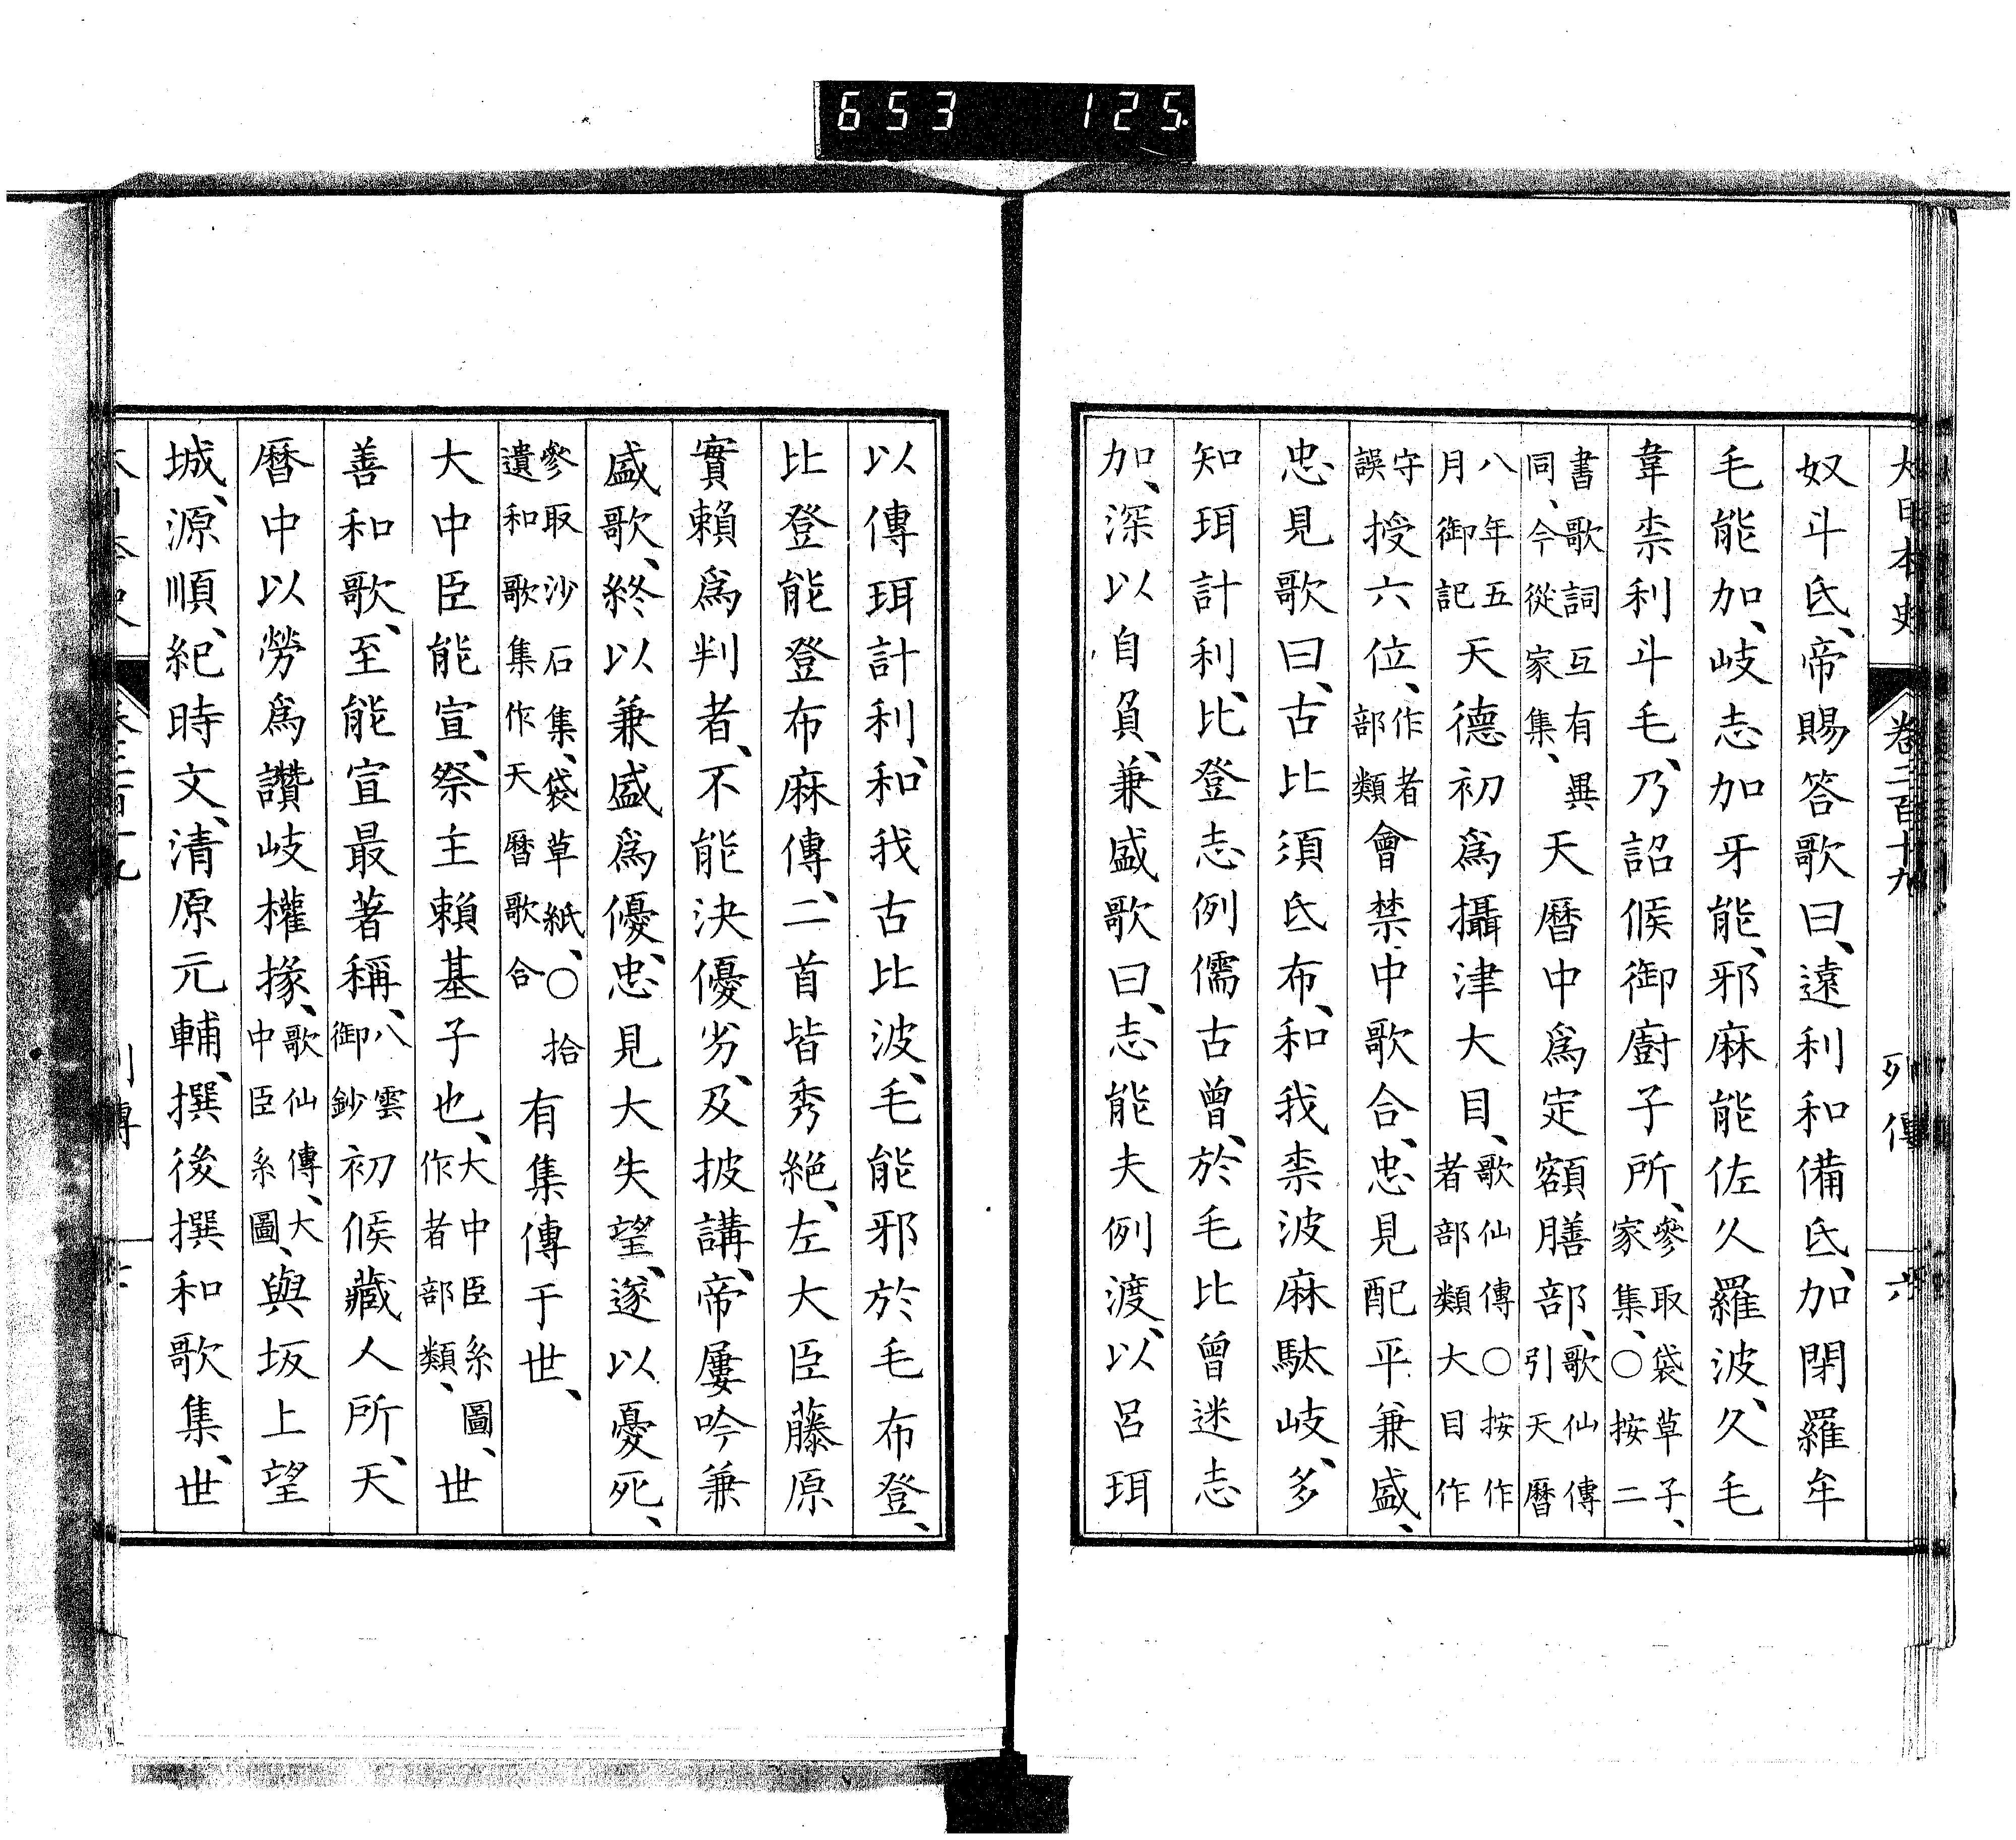 653 125
大日本史 卷二百十九 列傳 六
奴斗氐、帝賜答歌曰、遠利和備氐、加閇羅牟
毛能加、岐志加牙能、邪麻能佐久羅波、久毛
韋柰利斗毛、乃詔候御廚子所、參取袋草子、家集、○按二
書歌詞互有異同、今從家集、天曆中爲定額膳部、歌仙傳引天曆
八年五月御記天德初爲攝津大目、歌仙傳○按作者部類大目作
守誤授六位、作者部類會禁中歌合、忠見配平兼盛、
忠見歌曰、古比須氐布、和我柰波麻駄岐、多
知珥計利、比登志例儒古曾、於毛比曾迷志
加、深以自負、兼盛歌曰、志能夫例渡、以呂珥
以傳珥計利、和我古比波、毛能邪於毛布登、
比登能登布麻傳、二首皆秀絶、左大臣藤原
實賴爲判者、不能決優劣、及披講、帝屢吟兼
盛歌、終以兼盛爲優、忠見大失望、遂以憂死、
參取沙石集、袋草紙、○拾遺和歌集作天曆歌合有集傳于世、
大中臣能宣、祭主賴基子也、大中臣系圖、作者部類、世
善和歌、至能宣最著稱、八雲御鈔初候藏人所、天
曆中以勞爲讚岐權掾、歌仙傳、大中臣系圖、與坂上望
城、源順、紀時文、清原元輔、撰後撰和歌集、世